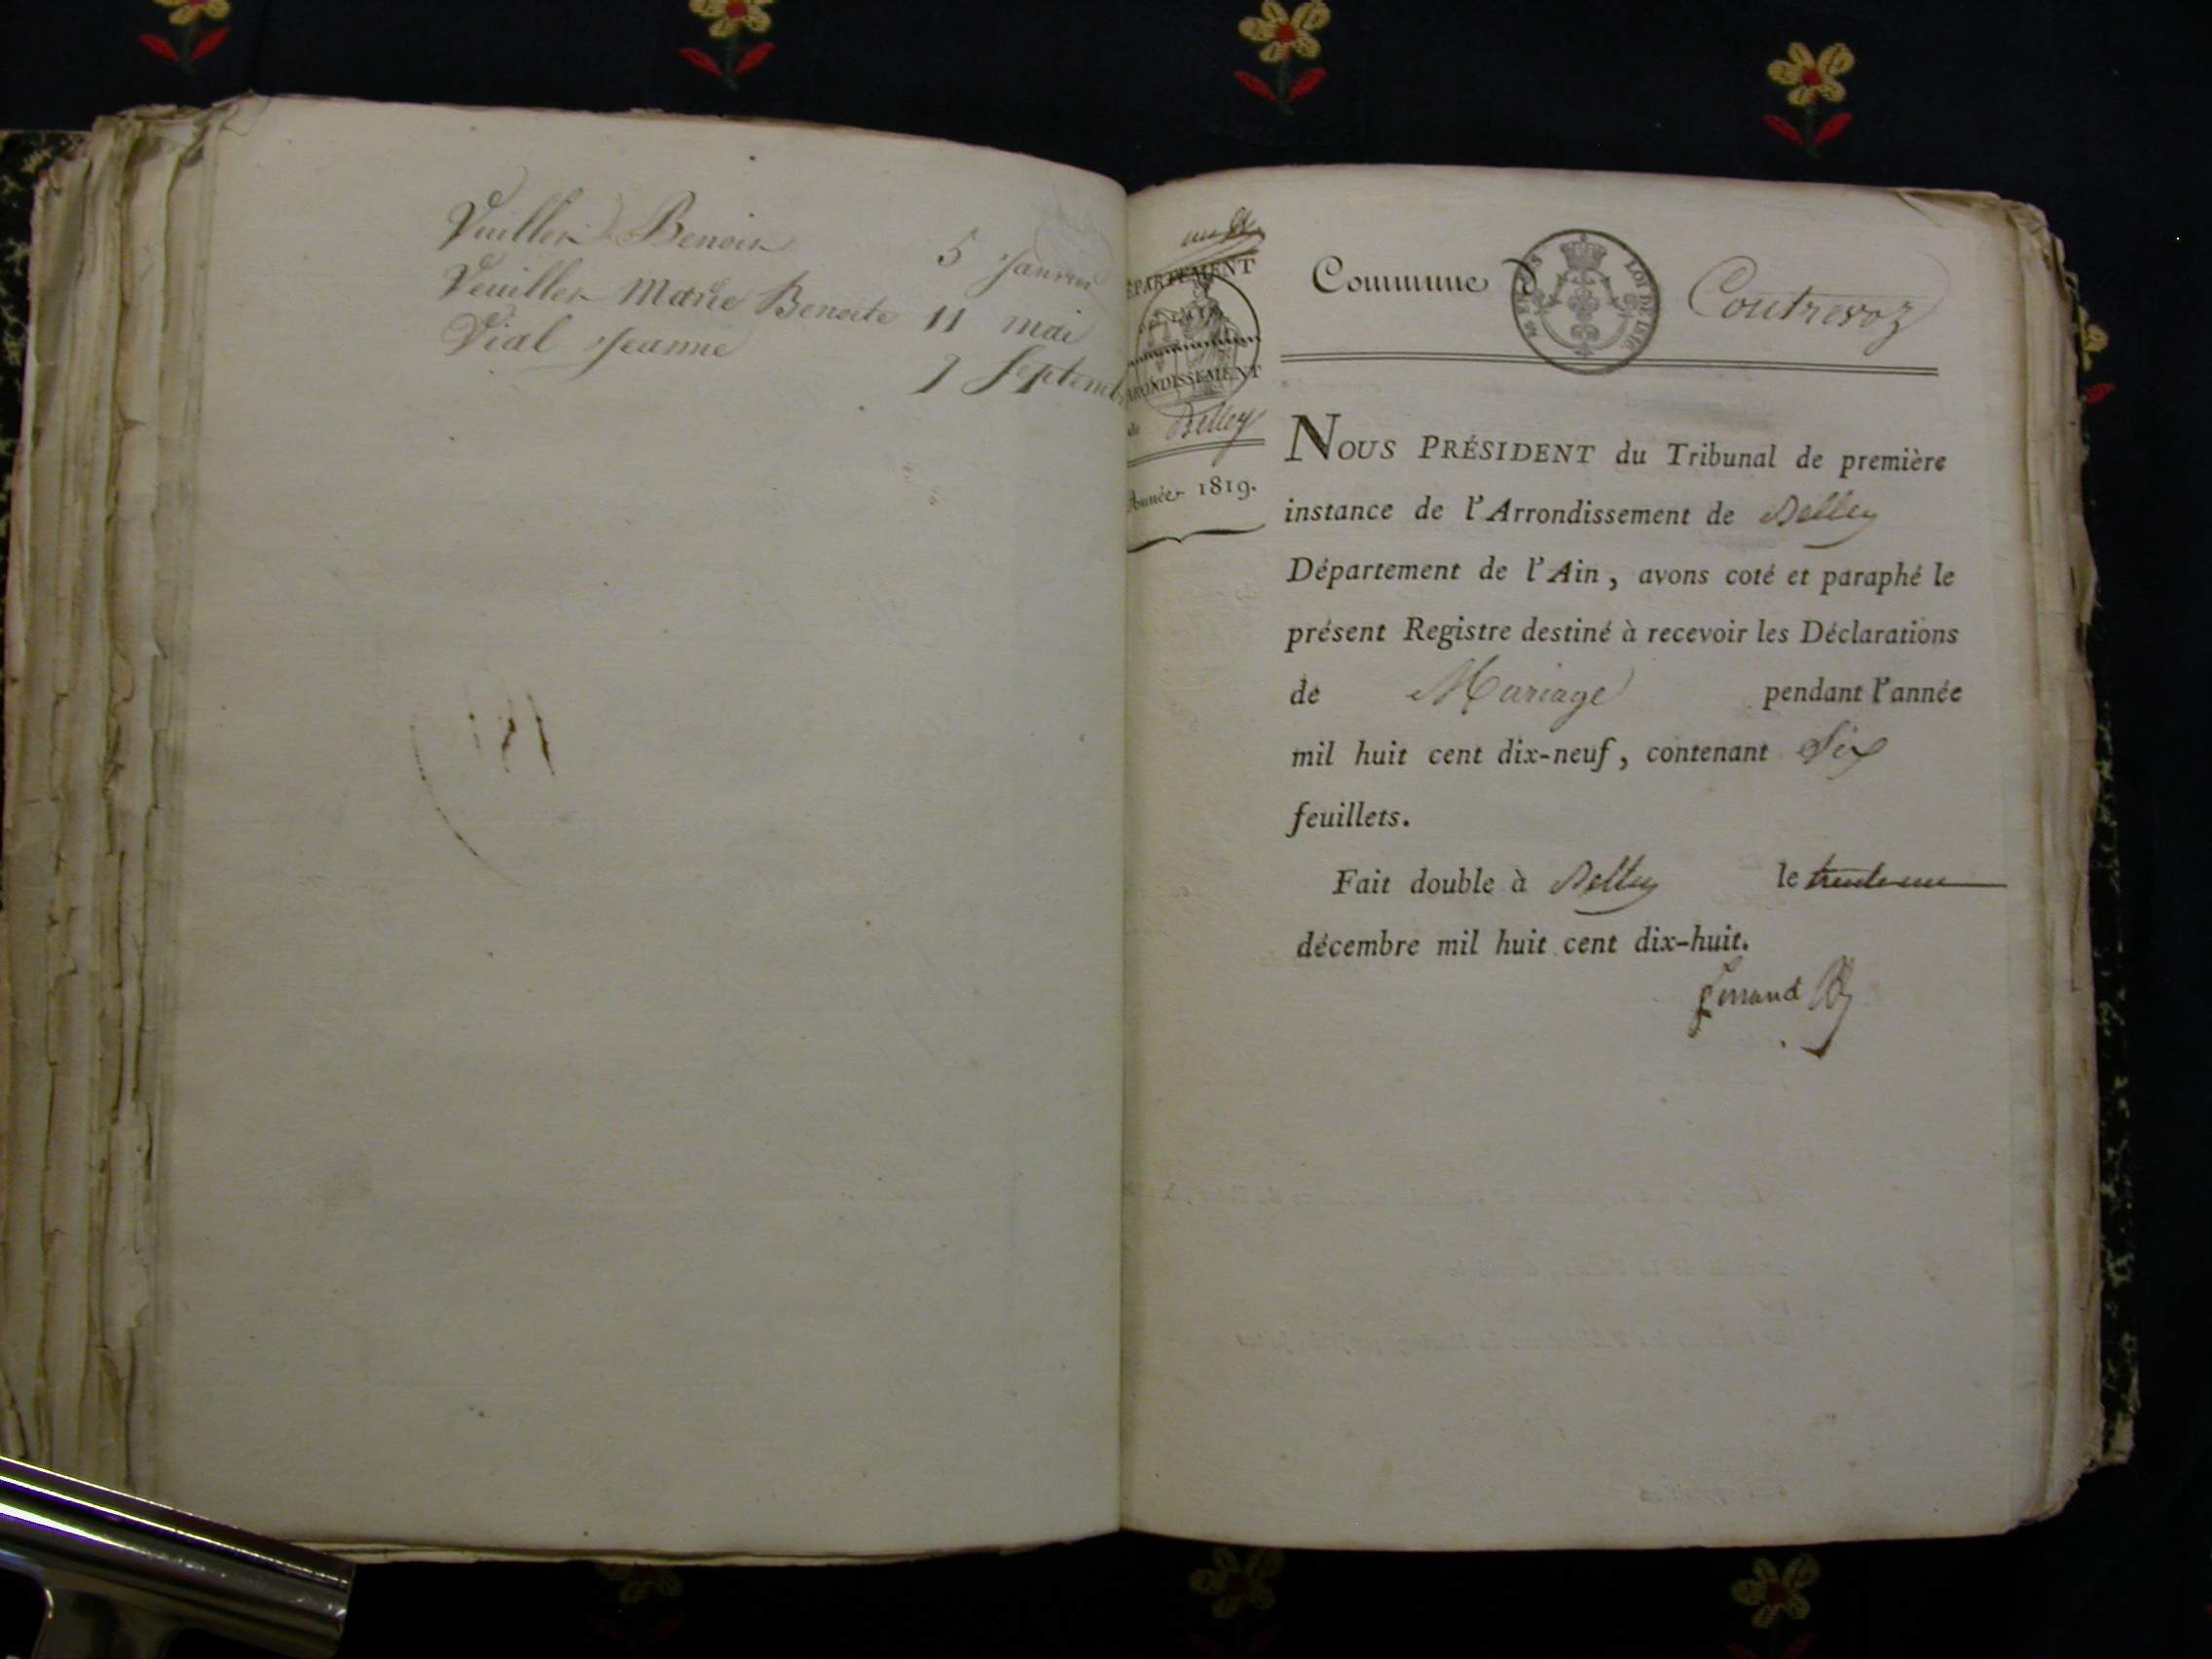 Vuiller Benoit 5 Janvier
Veuiller Marie Benoite 11 mai
Vial Jeanne 7 Septemb
DÉPARTEMENT
DE L'AIN
ARRONDISSEMENT
de Belley
Année 1819.
Commune d Contrevoz
NOUS PRÉSIDENT du Tribunal de première
instance de l'Arrondissement de Belley
Département de l'Ain, avons coté et paraphé le
présent Registre destiné à recevoir les Déclarations
de Mariage pendant l'année
mil huit cent dix-neuf, contenant Six
feuillets.
Fait double à Belley le trente un
décembre mil huit cent dix-huit.